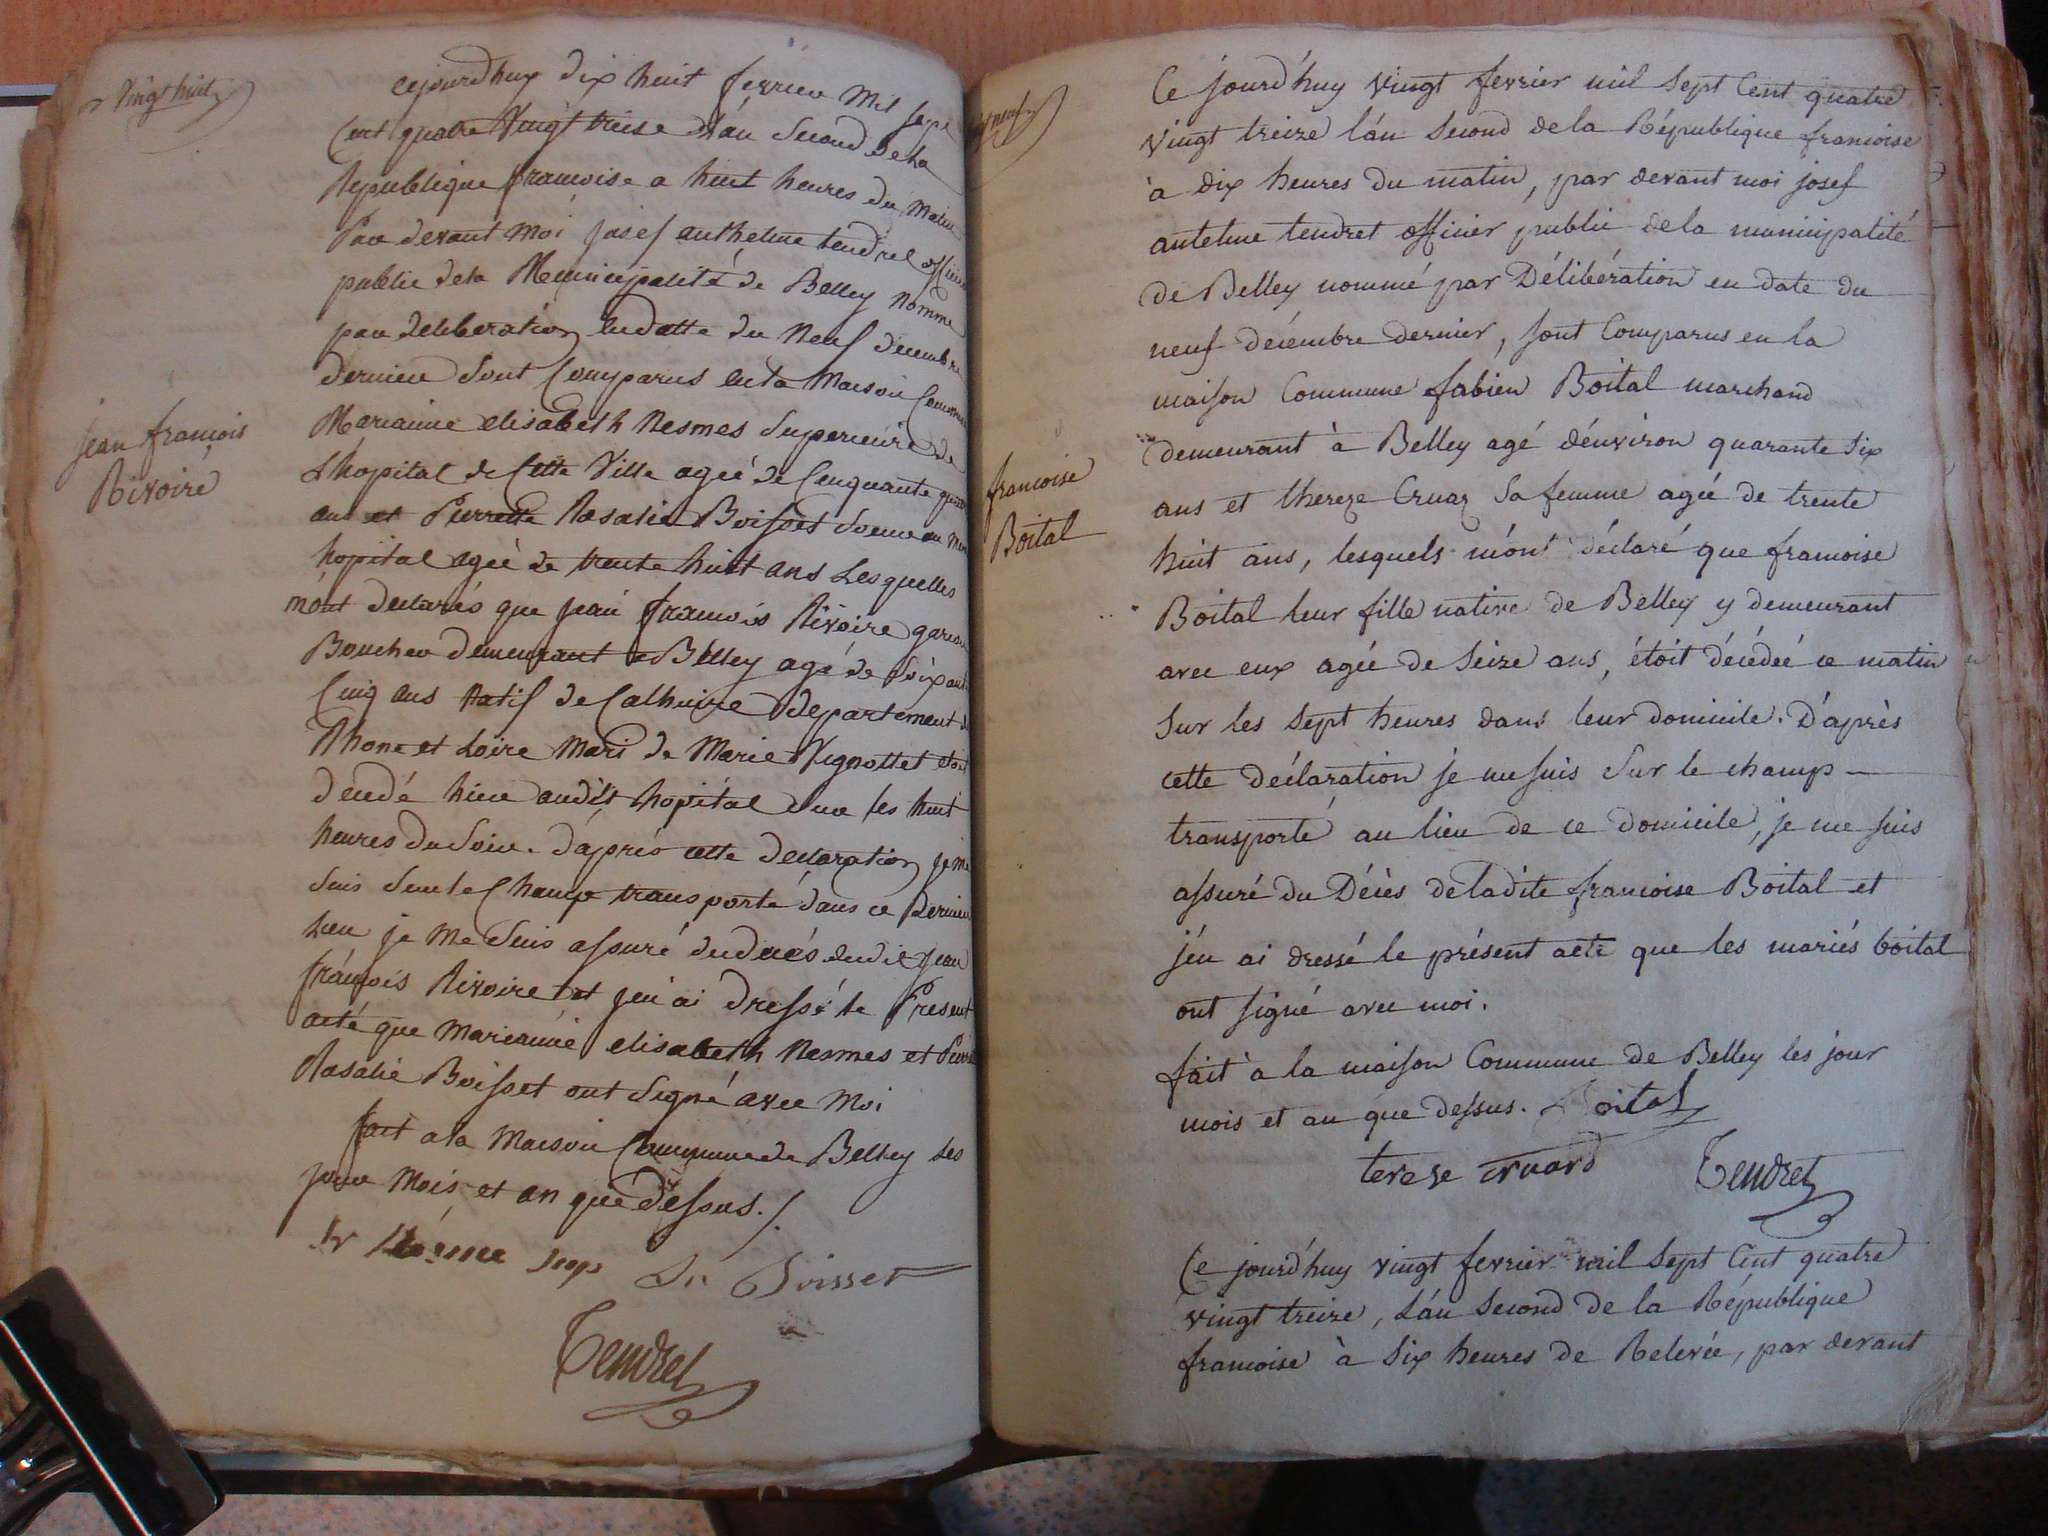 vingt huit
cejourd'huy dix huit fevrier mil sept
Cent quatre Vingt treise L'án Second dela
Republique francoise a huit heures du matin
Par devant moi josef anthelme tendret officier
public dela Municipalité de Belley nommé
par deliberation endatte du neuf decembre
dernier Sont Comparus enla Maison Commune
Marianne elisabeth Nesmes Superieure de
L'hopital de Cette Ville ageé de Cenquante quatre
ans et Pierrette Rosalie Boisset Soeur au mem
hopital ageé de trente huit ans Lesquelles
m'ónt declarés que jean francois Rivoire garcon
Boucher demeurant a Belley agé de Soixante
Cinq ans Natif de Calhuire departement de
Rhone et Loire Mari de Marie Vignottet etoit
decedé hier audit hopital sur les huit
heures du Soir. d'aprés cette declaration je me
Suis Surle Champ transporté dans ce dernier
Lieu je me Suis assuré dudecés dudit jean
françois Rivoire et j'en ai dressé le Present
acté que marianne elisabeth Nesmes et Pierrette
Rosalie Boisset ont Signé avec Moi
fait a la Maison Commune de Belley Les
jour Mois et an que dessus ./.
jean françois
Rivoire
Sr Nésme Sup Sr Boisset
Tendret
gt neuf
Ce jourd'huy vingt fevrier mil sept Cent quatre
vingt treize l'án second dela République francoise
à dix heures du matin, par devant moi josef
antelme tendret officier public dela municipalité
de Belley nommé par Délibération en date du
neuf décembre dernier, sont Comparus en la
maison Commune fabien Boital marchand
demeurant à Belley agé d'énviron quarante six
ans et thereze Cruaz Sa femme agée de trente
huit ans, lesquels m'ónt déclaré que francoise
Boital leur fille native de Belley y demeurant
avec eux agée de seize ans, étoit décédeé ce matin
sur les sept heures dans leur domicile. D'après
cette déclaration je me suis sur le champ
transporté au lieu de ce domicile, je me suis
assuré du Décès deladite francoise Boital et
j'én ai dressé le présent acte que les mariés boital
ont signé avec moi.
fait à la maison Commune de Belley les jour
mois et an que dessus. Boital
francoise
Boital
tereze cruard Tendret
Ce jourd'huy vingt fevrier mil sept Cent quatre
vingt treize, L'án second de la République
francoise à six heures de Relevée, par devant